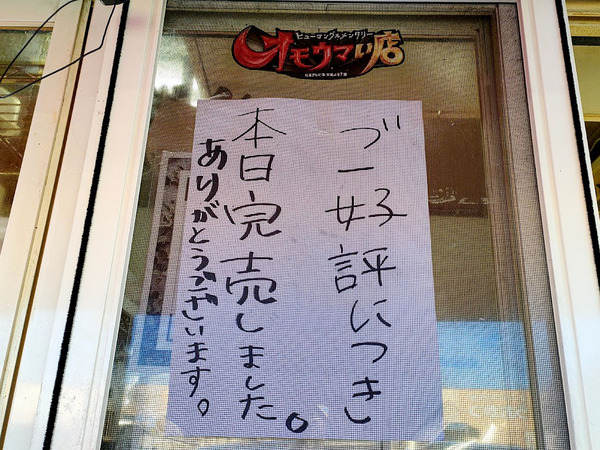 ヒューマングルメンタリー
オモウマい店
ご好評につき
本日完売しました。
ありがとうございます。